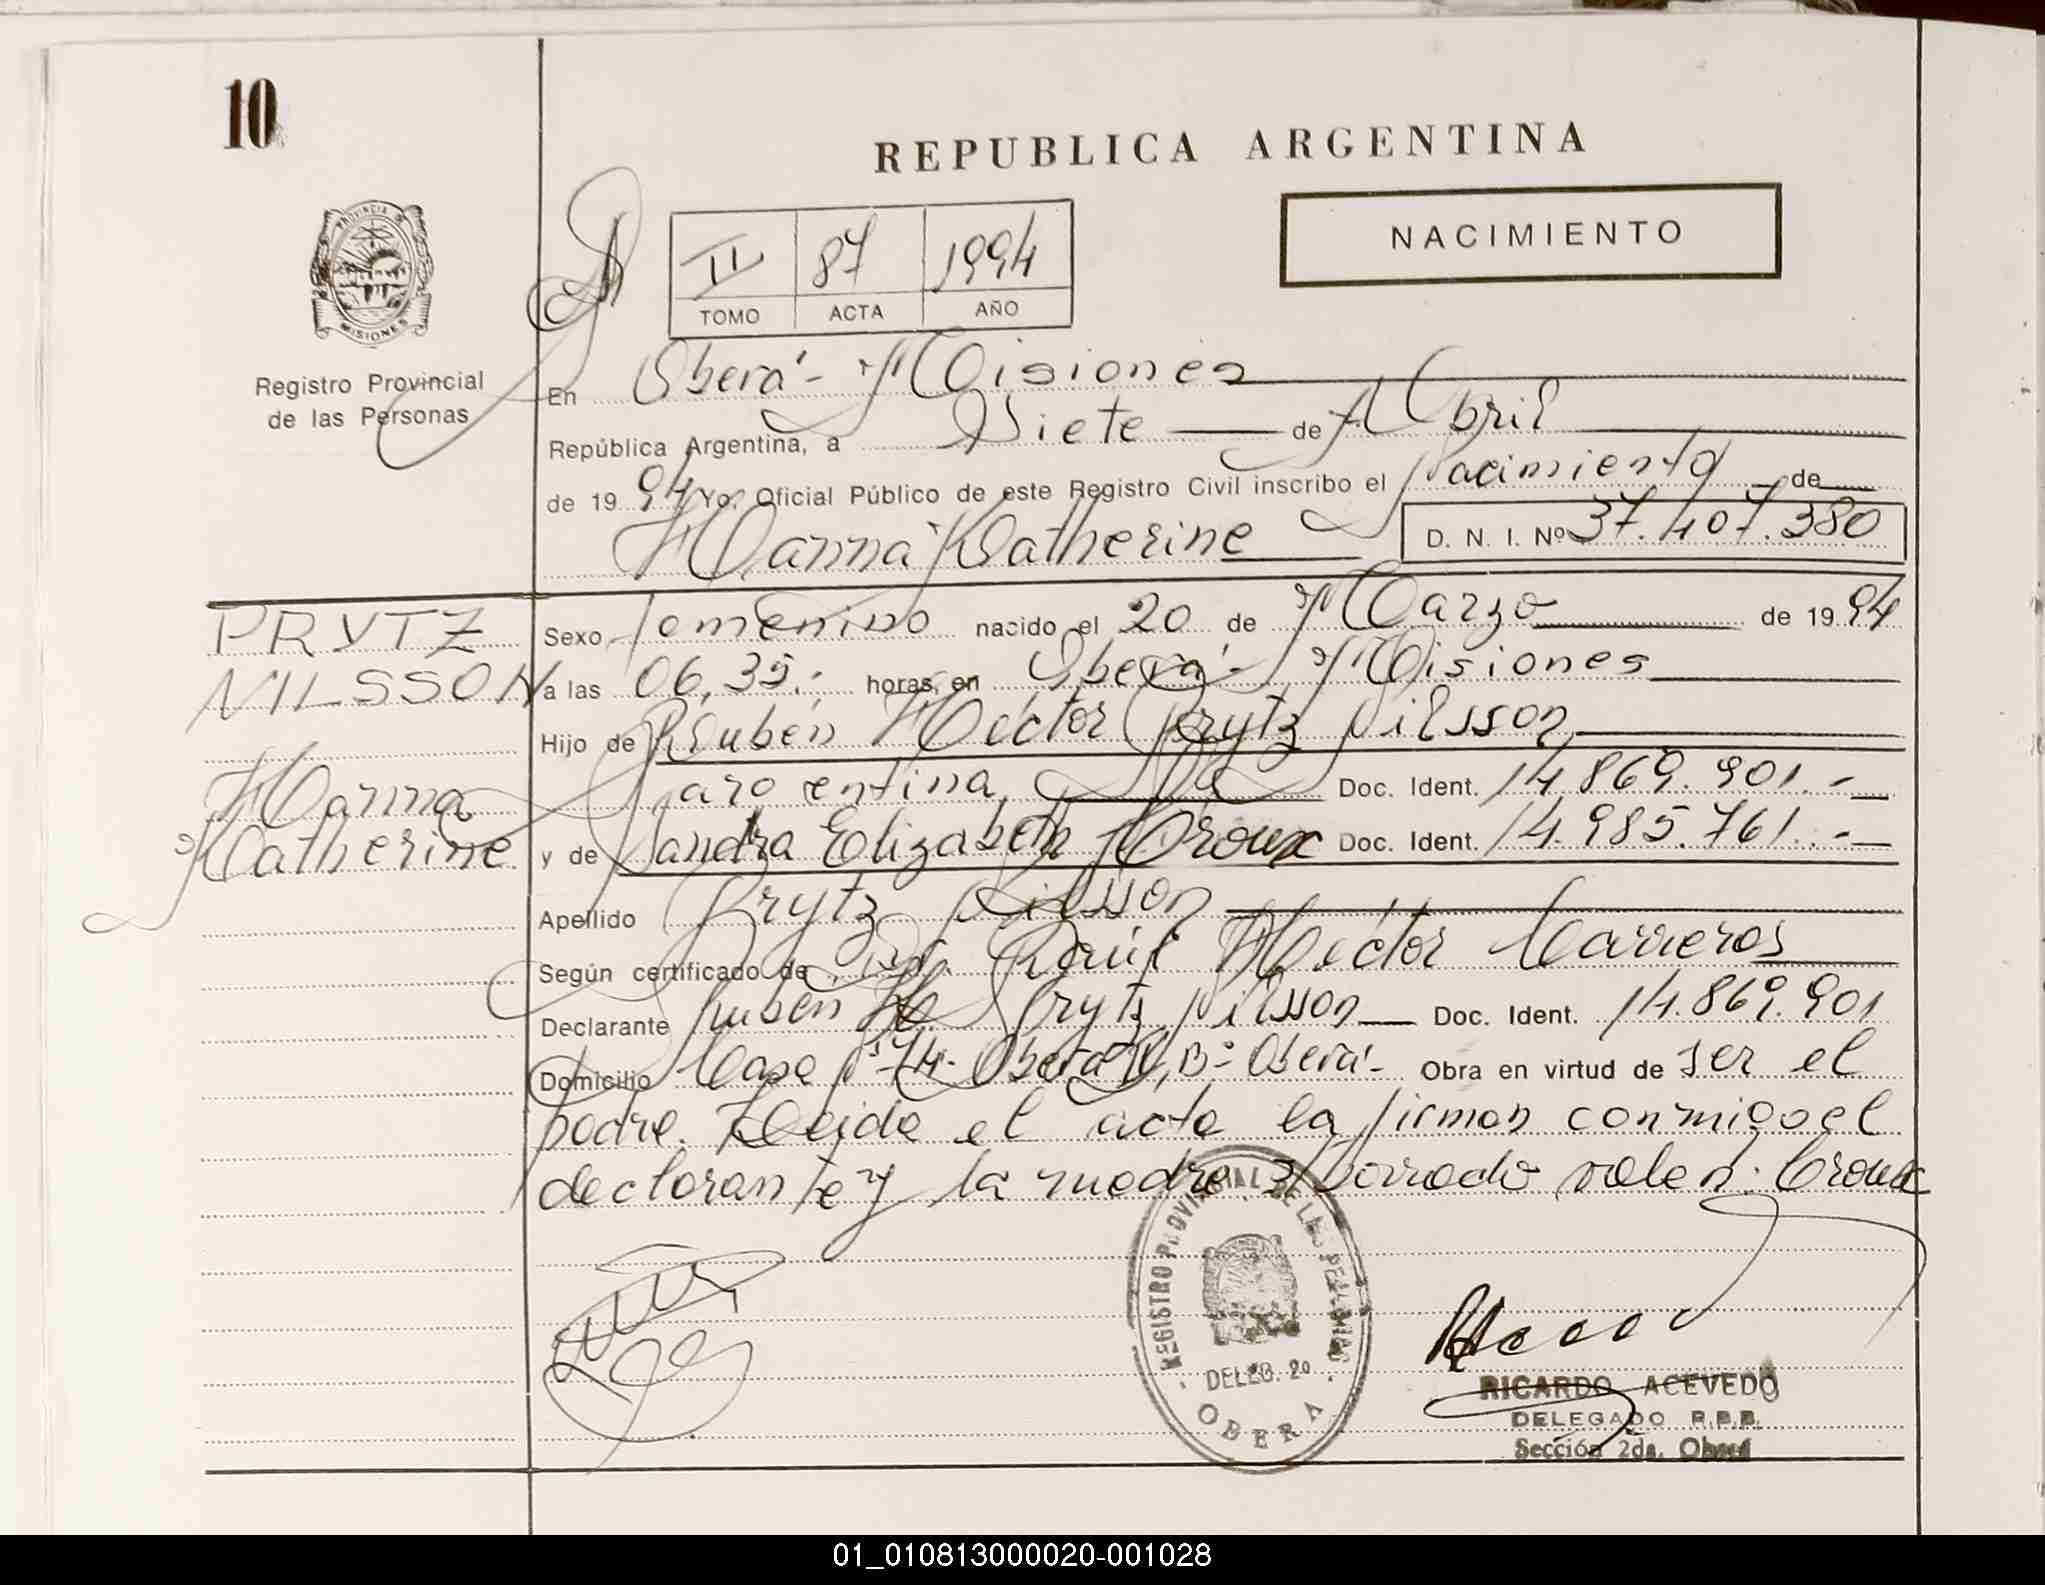 10
REPUBLICA ARGENTINA
NACIMIENTO
PROVINCIA DE
MISIONES
Registro Provincial
de las Personas
II 87 1994
TOMO ACTA AÑO
En Oberá - Misiones
República Argentina, a Siete de Abril
de 1994 Yo, Oficial Público de este Registro Civil inscribo el Nacimiento de
Hanna Katherine D. N. I. Nº 37.407.380
PRYTZ
NILSSON
Hanna
Katherine
Sexo femenino nacido el 20 de Marzo de 1994
a las 06,35.- horas, en Oberá - Misiones
Hijo de Rubén Héctor Prytz Nilsson
argentina Doc. Ident. 14.869.901.-
y de Sandra Elizabeth Croux Doc. Ident. 14.985.761.-
Apellido Prytz Nilsson
Según certificado de Dr. Raúl Héctor Carreros
Declarante Rubén H. Prytz Nilsson Doc. Ident. 14.869.901
Domicilio Casa Nº 74- Oberá IV, Bº- Oberá- Obra en virtud de ser el
padre. Leida el acta la firman conmigo el
declarante y la madre s/borrado vale n: Croux
REGISTRO PROVINCIAL DE LAS PERSONAS
DELEG. 20
OBERA
RICARDO ACEVEDO
DELEGADO R.P.P.
Sección 2da. Oberá
01_010813000020-001028